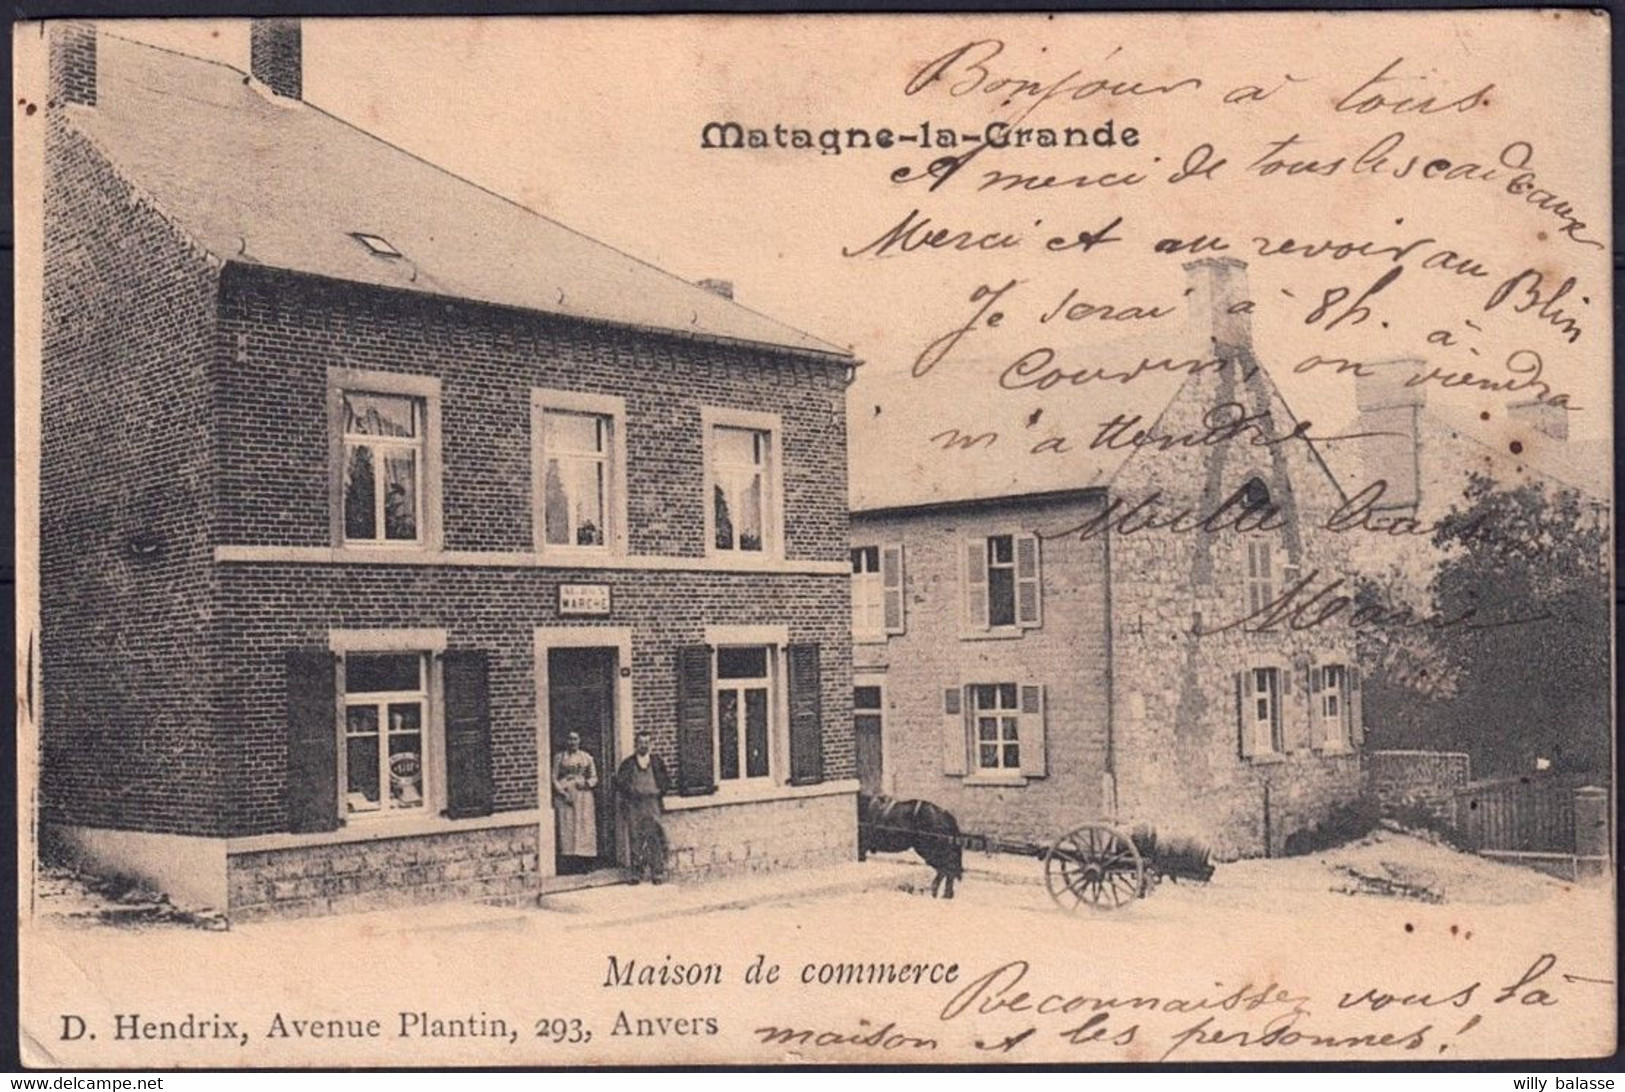 Bonjour à tous
Matagne-la-Grande
Et merci de tous les cadeaux
Merci et au revoir au Blin
Je serai à 8h. à
Couvin, on viendra
m'attendre
Mille baisers
Marie
MARCHÉ
Maison de commerce
Reconnaissez vous la
D. Hendrix, Avenue Plantin, 293, Anvers
maison et les personnes!
willy balasse